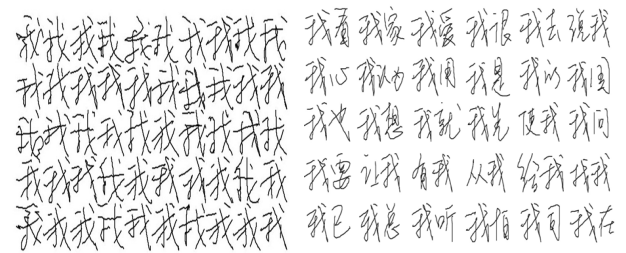 我我我我我我我我我我
我我我我我我我我我我
我我我我我我我我我我
我我我我我我我我我我
我我我我我我我我我我
我看 我家 我爱 我很 我去 说我
我心 我认为 我用 我是 我的 我国
我也 我想 我就 我先 使我 我问
我要 让我 有我 从我 给我 找我
我已 我总 我听 我怕 我同 我在